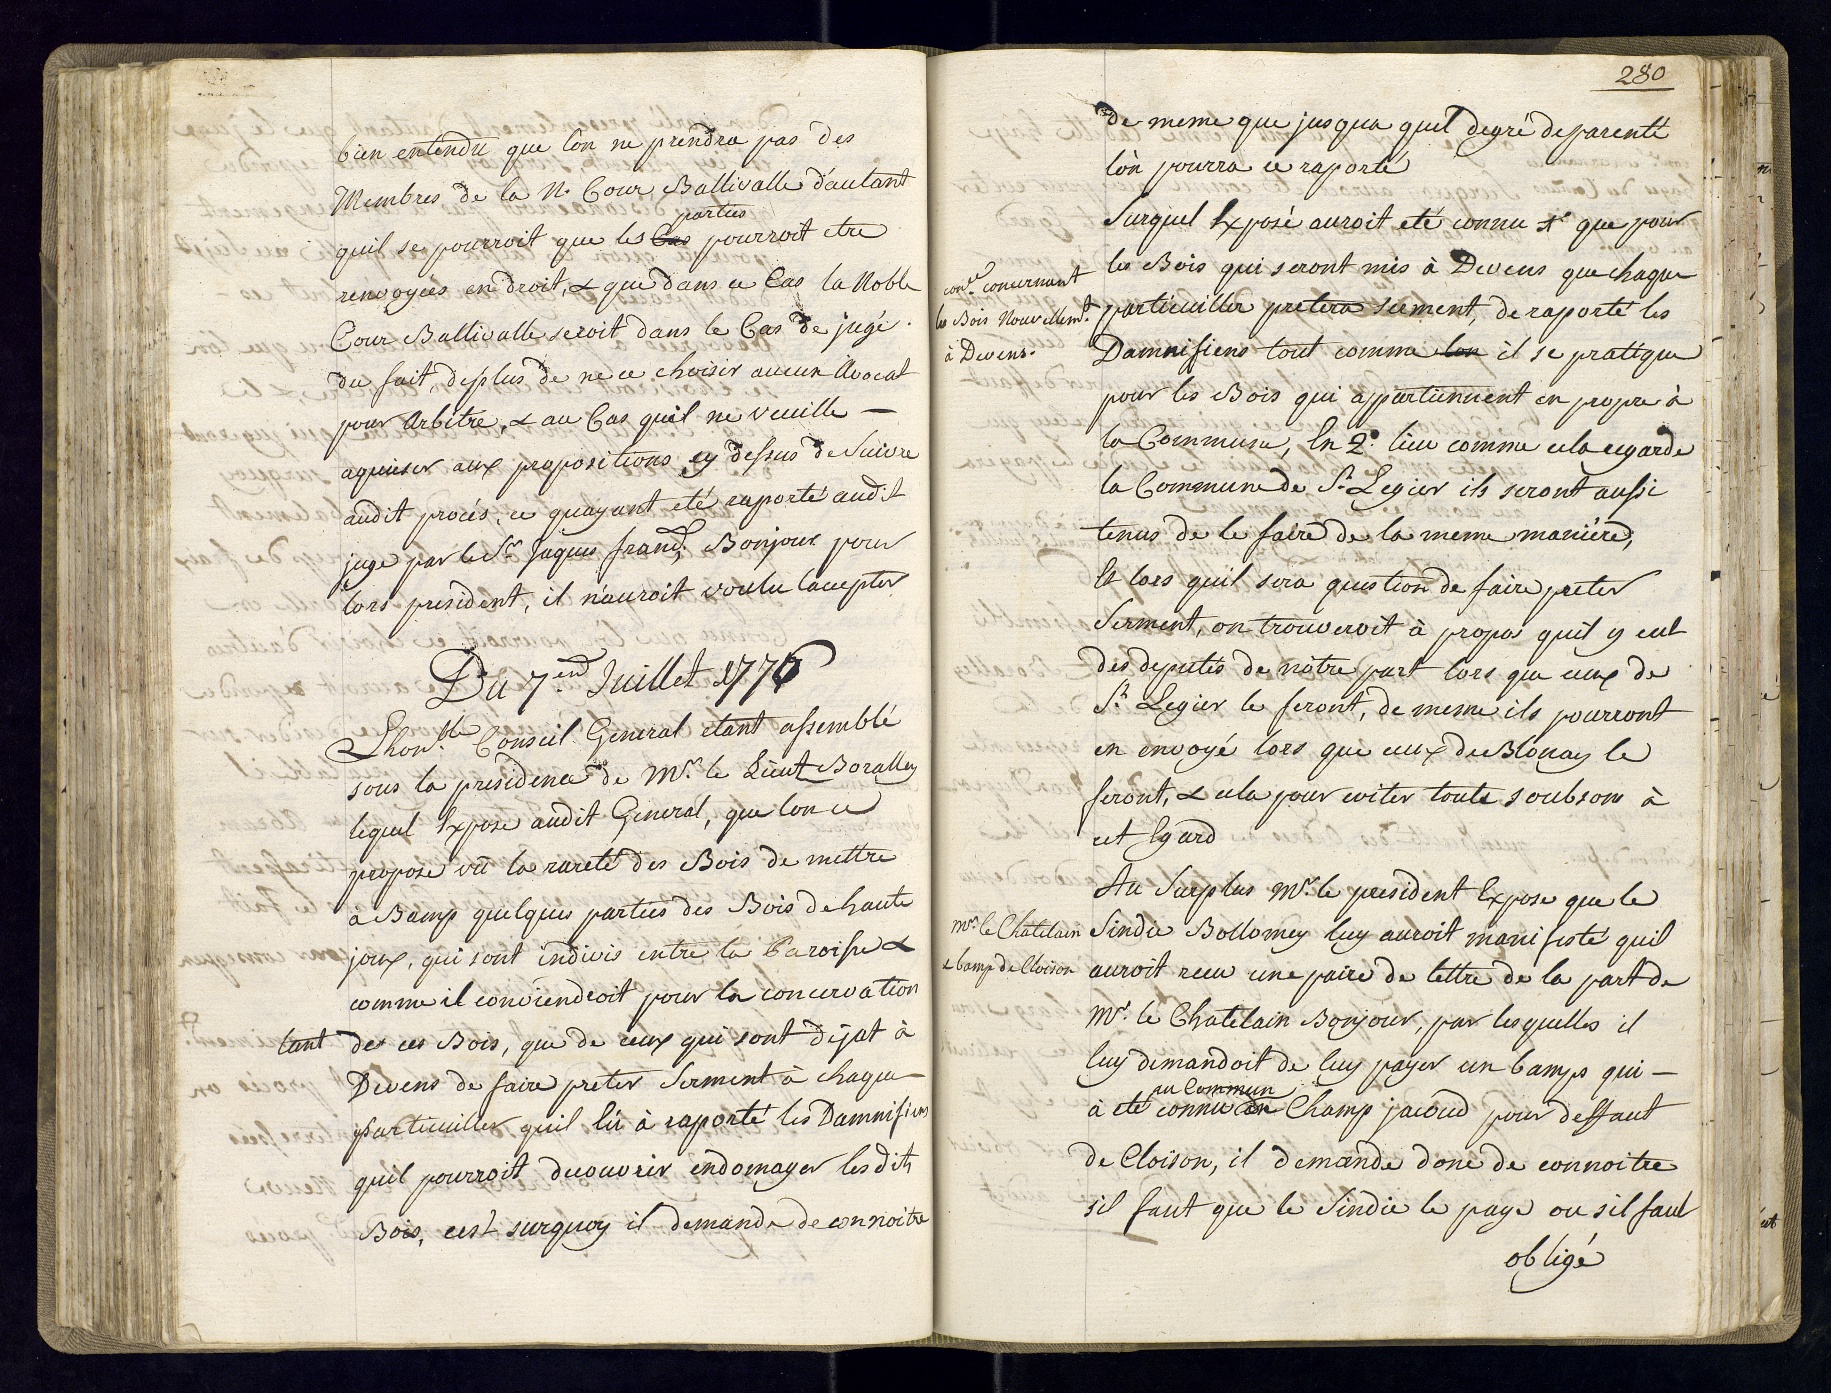 bien entendu que lon ne prendra pas des
Membres de la N. Cour Ballivalle d'autant
parties
quil se pourroit que les Cas pourroit etre
renvoyées en droit, & que dans ce Cas la Noble
Cour Ballivalle seroit dans le Cas de jugé
du fait, de plus de ne ce choisir aucun Avocat
pour Arbitre, & au Cas quil ne veuille —
aquieser aux propositions cy dessus de Suivre
audit procés, ce quayant eté raporté audit
juge par le Sr. Jaques franç. Bonjour pour
lors president, il n'auroit voulu lacepter
Du 7.end Juillet 1776
Lhon.ble Conseil General etant assemblé
sous la presidence de Mr. le Lieut Boralley
lequel Expose audit General, que lon ce
propose vû la rareté des Bois de mettre
à Bamp quelques parties des Bois de haute
joux, qui sont indivis entre la Paroisse &
comme il conviendroit pour la concervation
tant des ces Bois, que de ceux qui sont dejat à
Devens de faire preter Serment à chaque
particuiller quil lû à raporté les Damnifiens
quil pourroit decouvrir endomager lesdits
Bois, cest surquoy il demande de connoitre
280
de meme que jusqua quel degré de parenté
lòn pourra ce raporté
Surquel Exposé auroit eté connu 1.e que pour
con.e concernant
les Bois Nouvellem.t
à Devens.
les Bois qui seront mis à Devens que chaque
particuiller pretera serment, de raporté les
Damnifiens tout comme lon il se pratique
pour les Bois qui appartiennent en propre à
la Commune, En 2.e lieu comme cela regarde
la Commune de St. Legier ils seront aussi
tenus de le faire de la meme maniére,
Et lors quil sera question de faire preter
Serment, on trouveroit à propos quil y eut
des deputés de nôtre part lors que ceux de
St. Legier le feront, de meme ils pourront
en envoyé lors que ceux de Blonay le
feront, & cela pour eviter toute soubson à
cet Egard
Au Surplus Mr. le president Expose que le
Mr. le Chatelain
& bamp de Cloison
Sindic Bollomey luy auroit manifesté quil
auroit recu une paire de lettre de la part de
Mr. le Chatelain Bonjour, par lesquelles il
luy demandoit de luy payer un bamps qui —
au Commun
à eté connu en Champ jacoud pour deffaut
de Cloison, il demande donc de connoitre
sil faut que le Sindic le paye ou sil faut
obligé